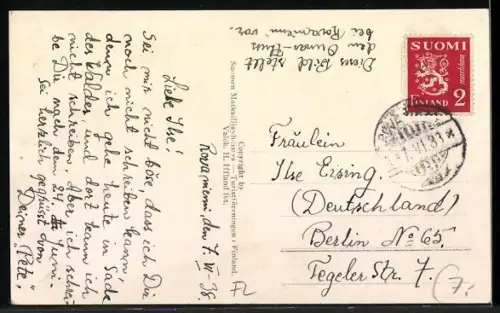 Dieses Bild stellt
den Ounas-Fluss
bei Rovaniemi vor.
SUOMI
markkaa
FINLAND 2
Rovaniemi, den 7. VI. 38
Liebe Ilse!
Sei mir nicht böse, dass ich Dir
noch nicht schreiben kann,
denn ich gehe heute in Ende
des Waldes und dort kann ich
nicht schreiben. Aber ich schrei-
be Dir nach dem 24. Juni.
Sei herzlich gegrüsst von
Deiner "Pete".
Copyright by
Suomen Matkailijayhdistys — Turistföreningen i Finland.
Valok. H. Iffland fot.
Fräulein
Ilse Ersing.
(Deutschland)
Berlin No 65.
Tegeler Str. 7.
FL
7.-